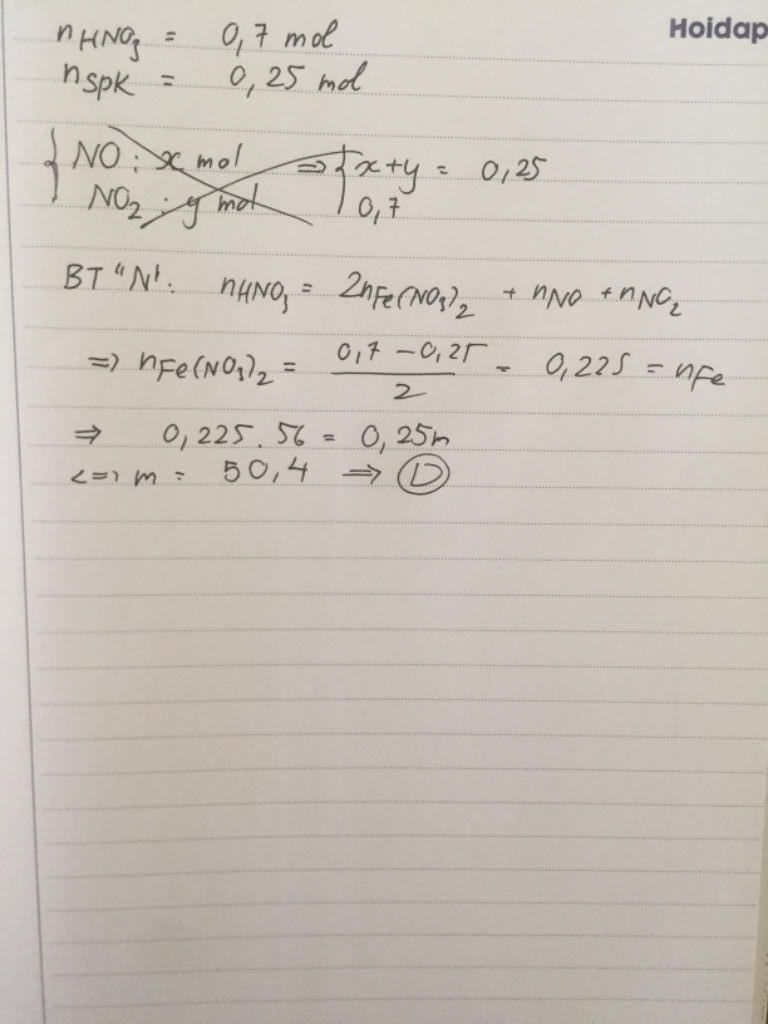 Hoidap
nHNO₃ = 0,7 mol
nSPK = 0,25 mol
{ NO : x mol ⇒ { x+y = 0,25
NO₂ : y mol 0,7
BT "N": nHNO₃ = 2nFe(NO₃)₂ + nNO + nNO₂
=> nFe(NO₃)₂ = (0,7 - 0,25)/2 = 0,225 = nFe
⇒ 0,225 . 56 = 0,25m
<=> m = 50,4 ⇒ Ⓓ